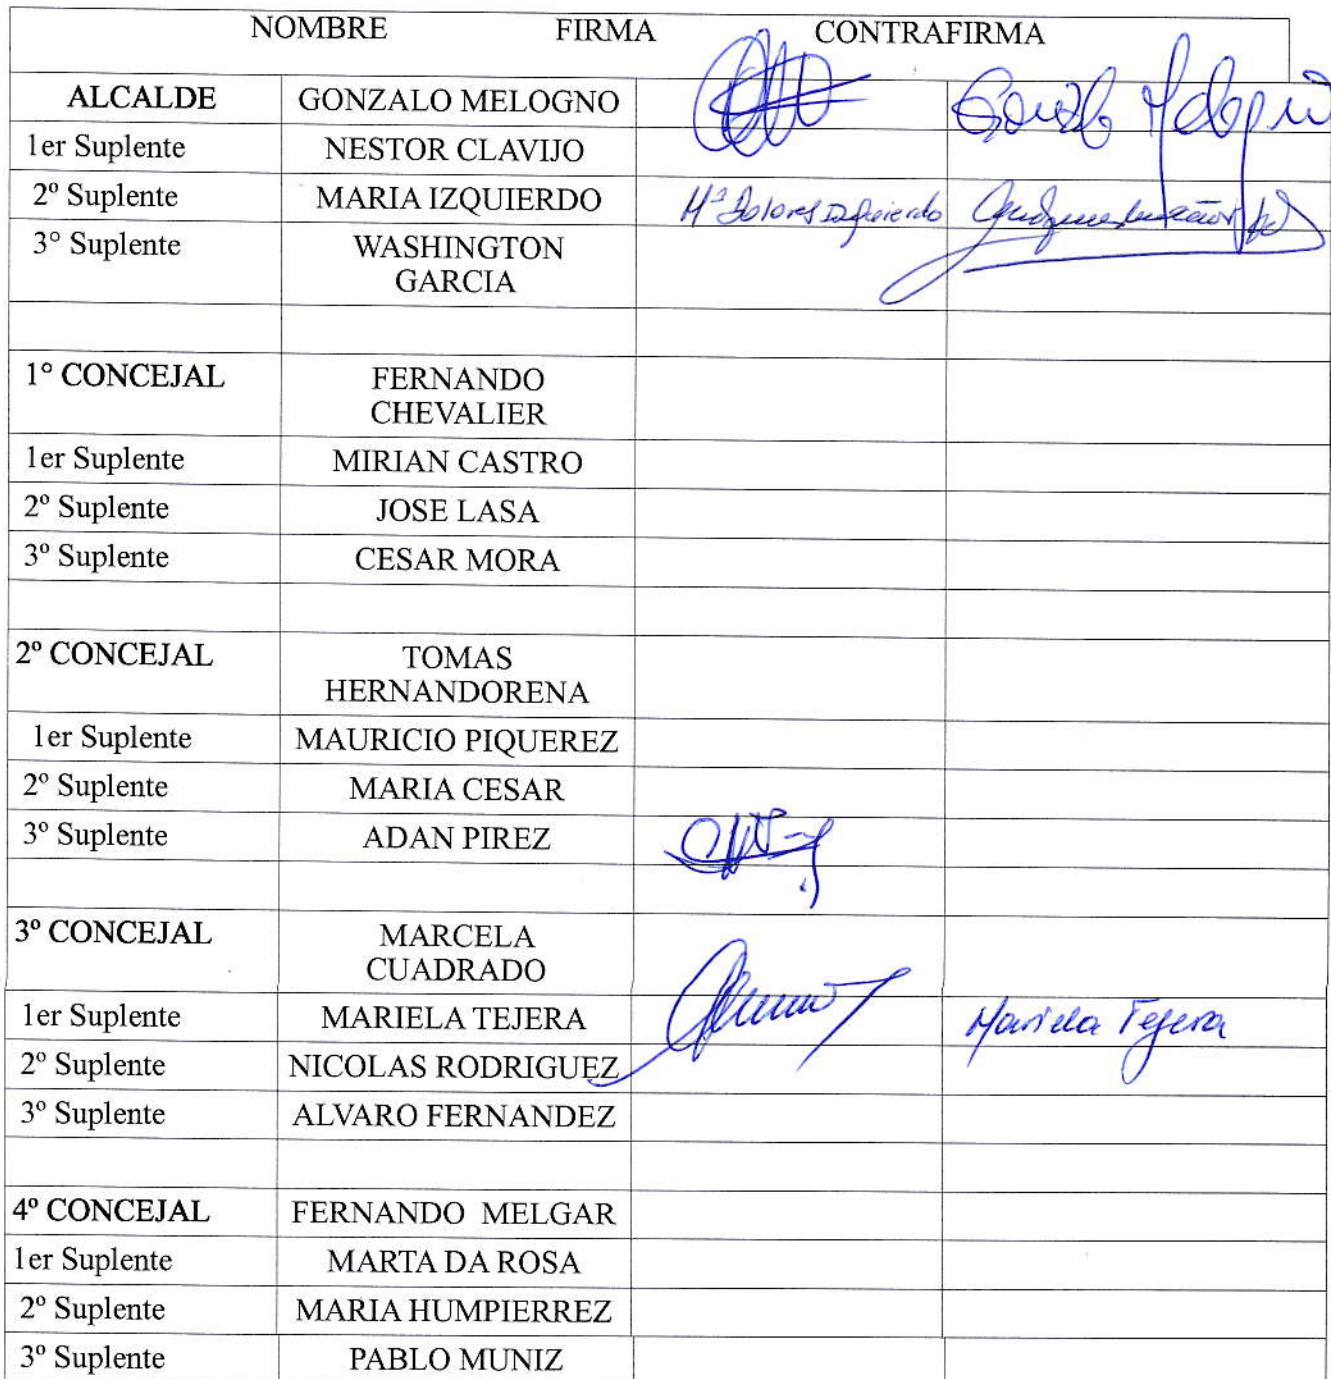 NOMBRE FIRMA CONTRAFIRMA
ALCALDE GONZALO MELOGNO Gonzalo Melogno
1er Suplente NESTOR CLAVIJO
2º Suplente MARIA IZQUIERDO Mª Dolores Izquierdo
3° Suplente WASHINGTON
GARCIA
1° CONCEJAL FERNANDO
CHEVALIER
1er Suplente MIRIAN CASTRO
2º Suplente JOSE LASA
3º Suplente CESAR MORA
2º CONCEJAL TOMAS
HERNANDORENA
1er Suplente MAURICIO PIQUEREZ
2º Suplente MARIA CESAR
3º Suplente ADAN PIREZ
3º CONCEJAL MARCELA
CUADRADO
1er Suplente MARIELA TEJERA Mariela Tejera
2º Suplente NICOLAS RODRIGUEZ
3º Suplente ALVARO FERNANDEZ
4º CONCEJAL FERNANDO MELGAR
1er Suplente MARTA DA ROSA
2º Suplente MARIA HUMPIERREZ
3º Suplente PABLO MUNIZ